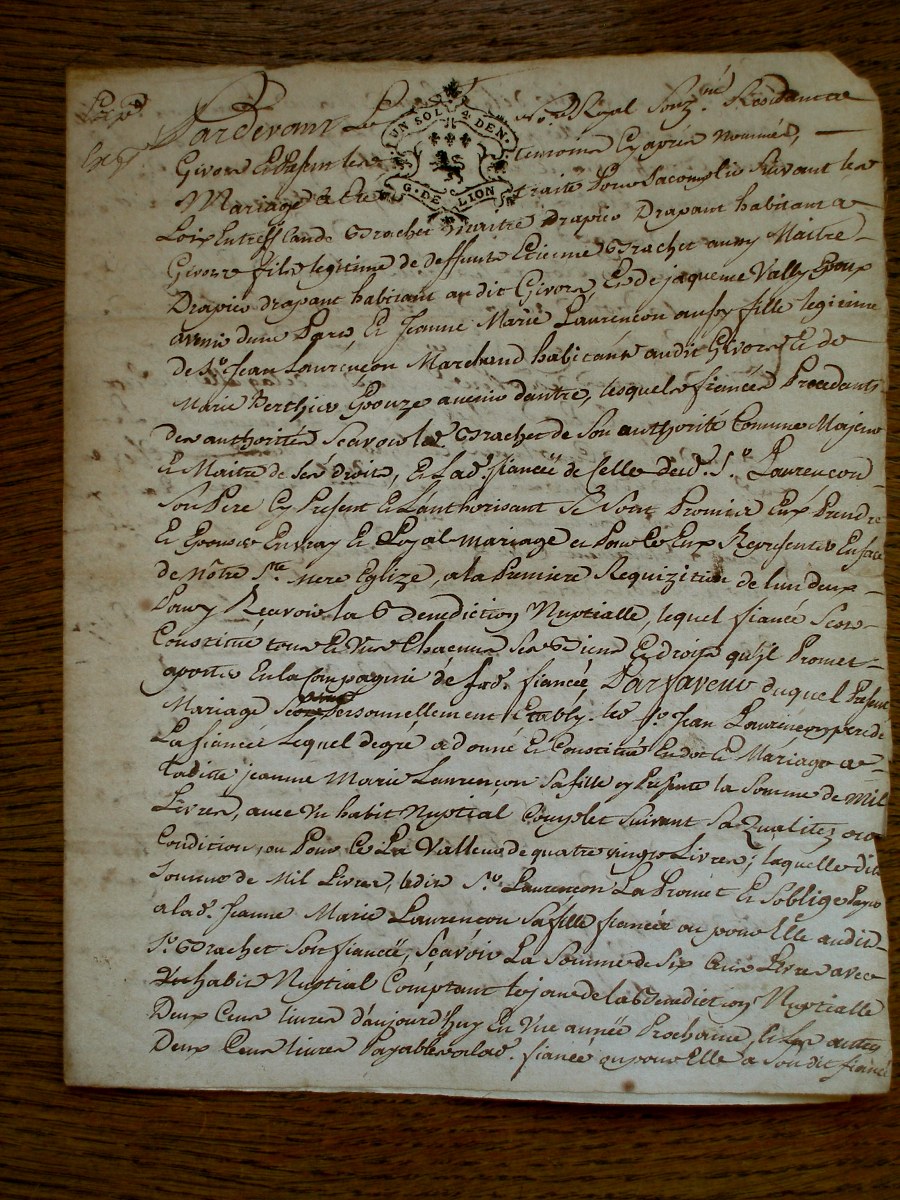 Exp.é
Pardevant Le No.re Royal Souz.né Residant a
UN SOL 4 DEN.
G. DE LION
Givors Et Presens les temoins Cy apres nommés,
Mariage a Eté traité Pour Sacomplir Suivant les
Loix Entre Sr Claude Brachet Maitre Drapier Drapant habitant a
Givors fils legitime de deffunts Etienne Brachet aussy Maitre
Drapier drapant habitant audit Givors, Et de jaqueme Vally Epoux
avenir dune Part, Et Jeanne Marie Laurençon aussy fille legitime
de Sr. Jean Laurençon Marchand habitant audit Givors Et de
Marie Berthier Epouze avenir dautre, lesquels fiancés Procedants
des authorités Scavoir led. Brachet de Son authorité Comme Majeur
Et Maitre de Ses Droits, Et Lad. fiancée de Celle dud. Sr. Laurençon
Son Pere Cy Present Et Lauthorisant Se Sont Promis Eux Prendre
Et Epouser En vray Et Loyal mariage et Pour Ce Eux Representer En face
de Nôtre Ste. mere Eglize, a la Premiere Requizition de lun deux
Pour y Recevoir la Benediction Nuptialle, lequel fiancé Sest
Constitué tous Et Uns Chacuns Ses Biens Et droits qu'il Promet
aporter En la Compagnie de Lad. fiancée, Par faveur duquel Present
Mariage Personnellement Etably led. Sr. Jean Laurençon pere de
La fiancée Lequel de gré a donné Et Constitué En dot Et Mariage a
Laditte jeanne Marie Laurençon Sa fille cy Presente la Somme de Mil
Livres, avec Un habit Nuptial Complet Suivant Sa Qualitez et
Condition, ou Pour Ce La Valleur de quatre vingt Livres; laquelle ditte
Somme de Mil Livres, ledit Sr. Laurençon La Promet Et Soblige Payer
a lad. Jeanne Marie Laurençon Sa fille fiancée ou pour Elle audit
Sr. Brachet Son fiancé, Scavoir La Somme de Six Cens Livres avec
Ledit habit Nuptial Comptant le jour de la Benediction Nuptialle
Deux Cens livres d'aujourd'huy En Une année Prochaine, Et Les autres
Deux Cens livres Payables a lad. fiancée ou pour Elle a Son dit fiancé